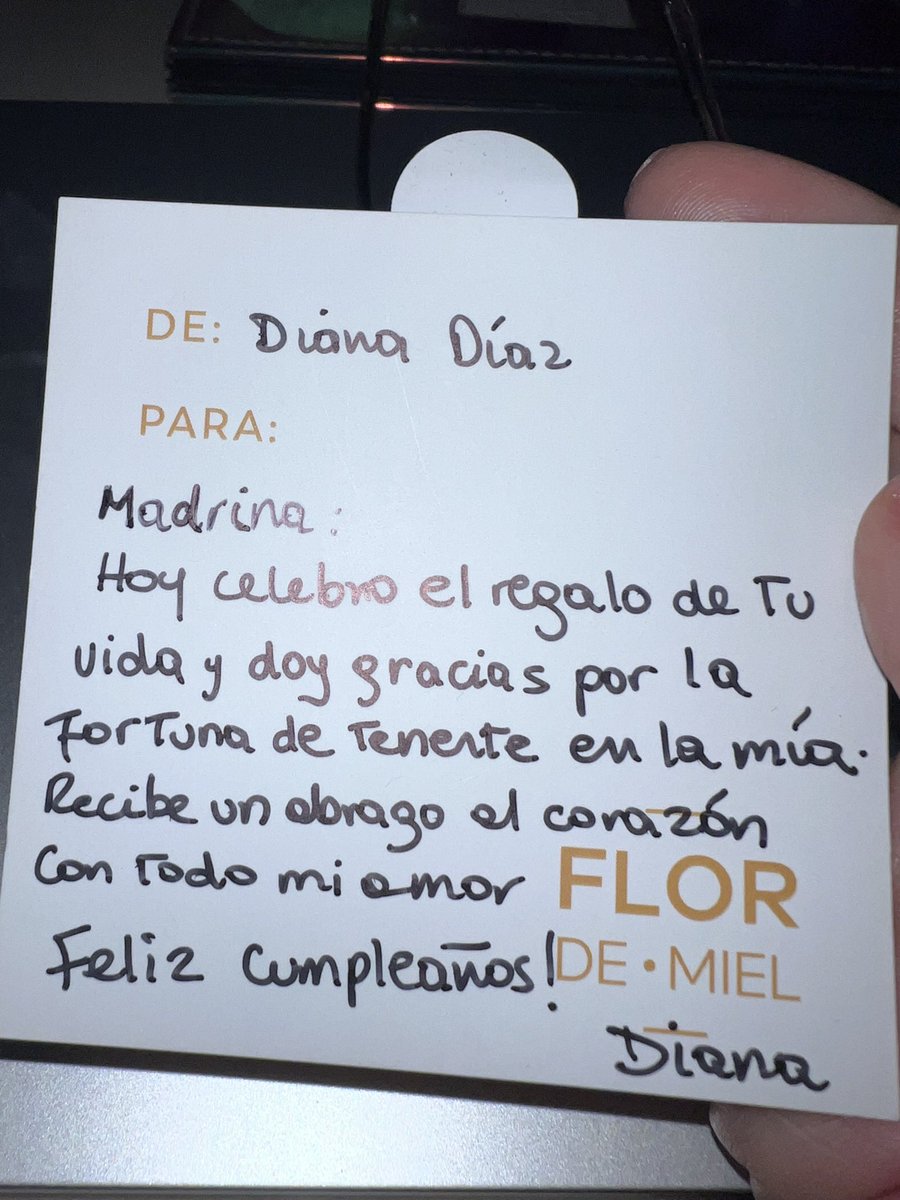 DE: Diana Díaz
PARA:
Madrina:
Hoy celebro el regalo de Tu
vida y doy gracias por la
Fortuna de Tenerte en la mía.
Recibe un abrazo al corazón
Con Todo mi amor
Feliz Cumpleaños!
FLOR
DE • MIEL
Diana